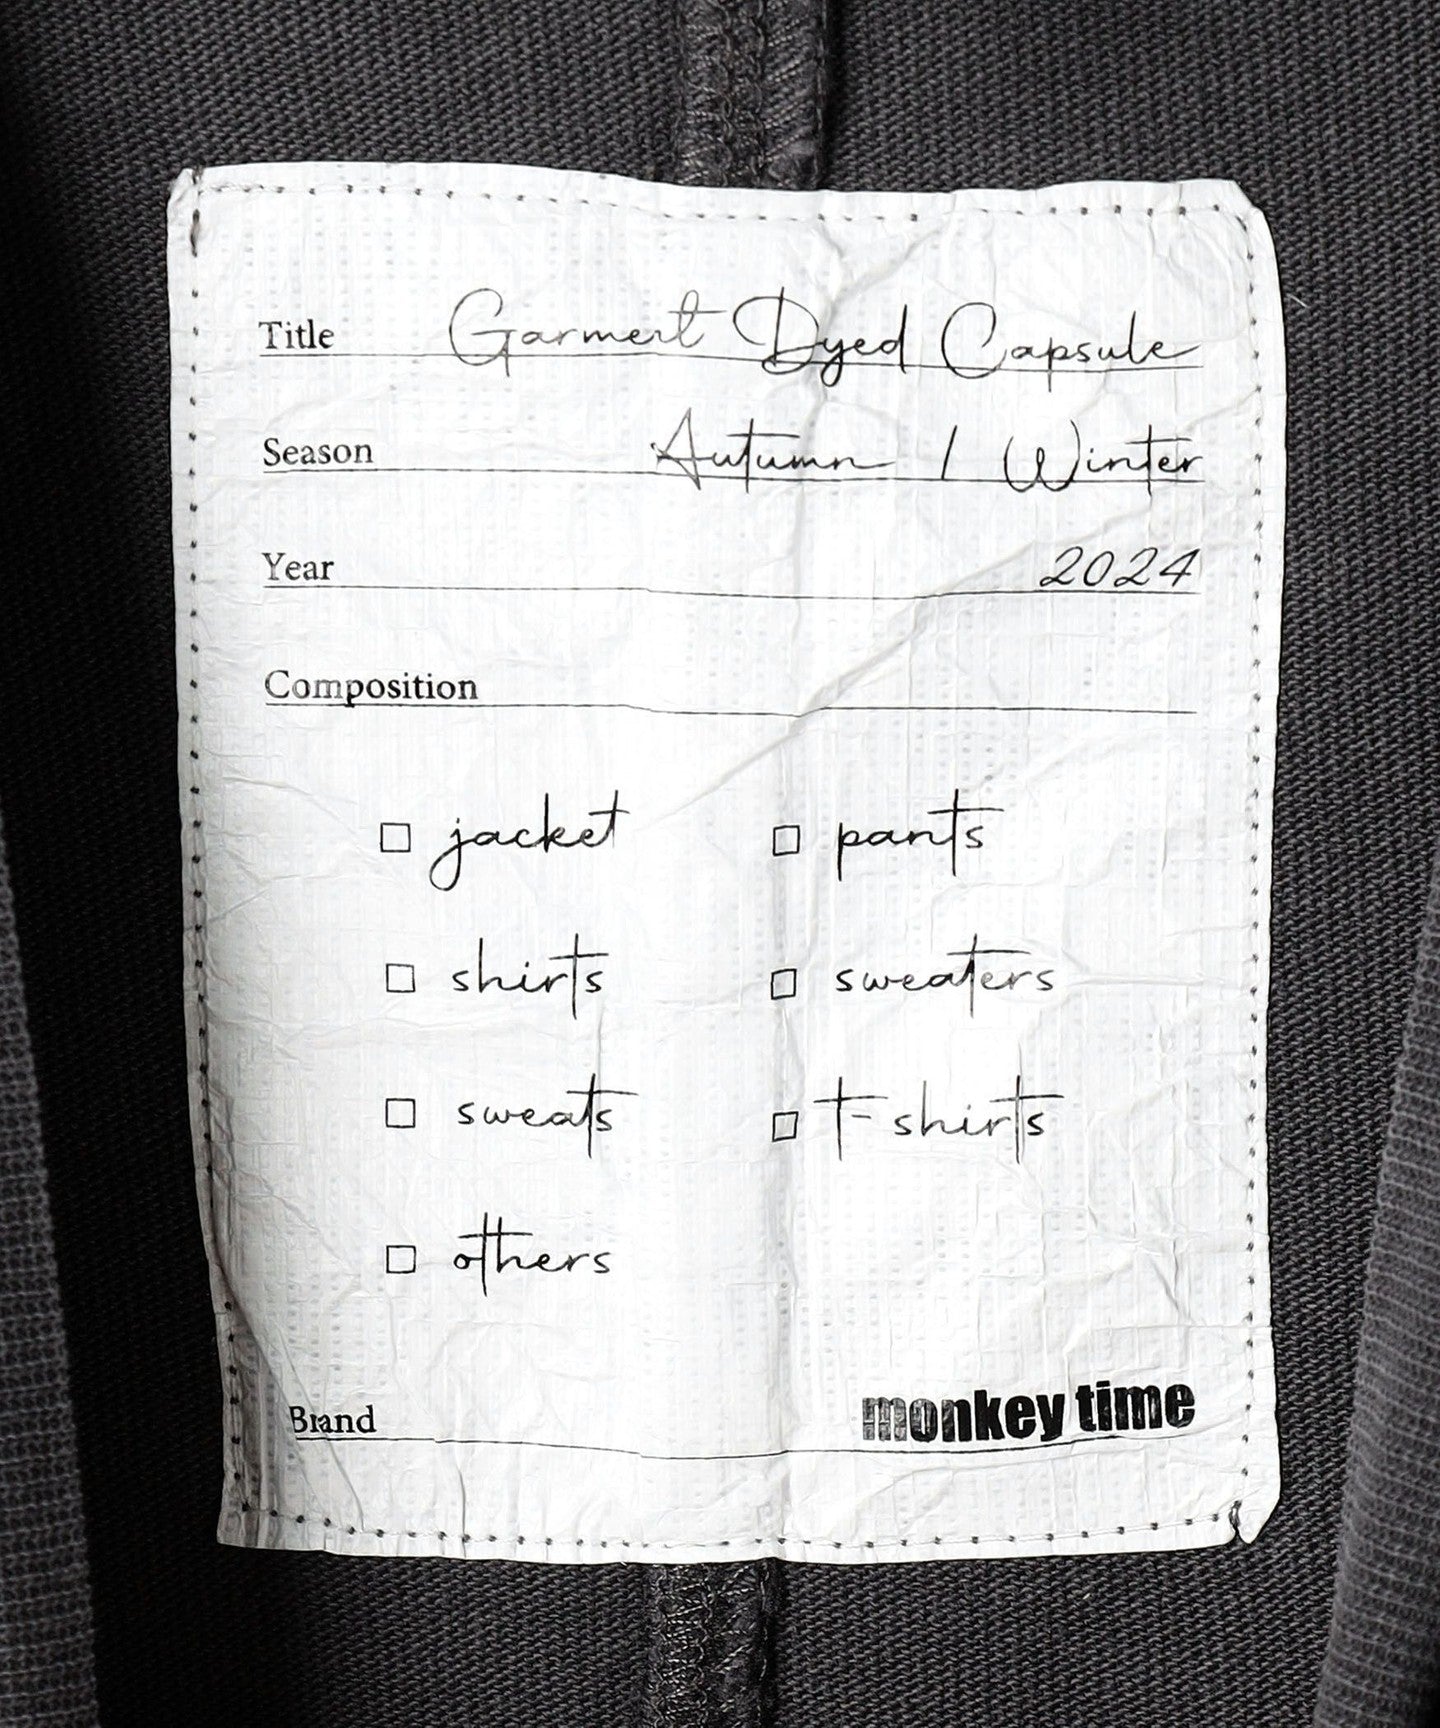 Title Garment Dyed Capsule
Season Autumn / Winter
Year 2024
Composition
□ jacket □ pants
□ shirts □ sweaters
□ sweats □ t-shirts
□ others
Brand monkey time